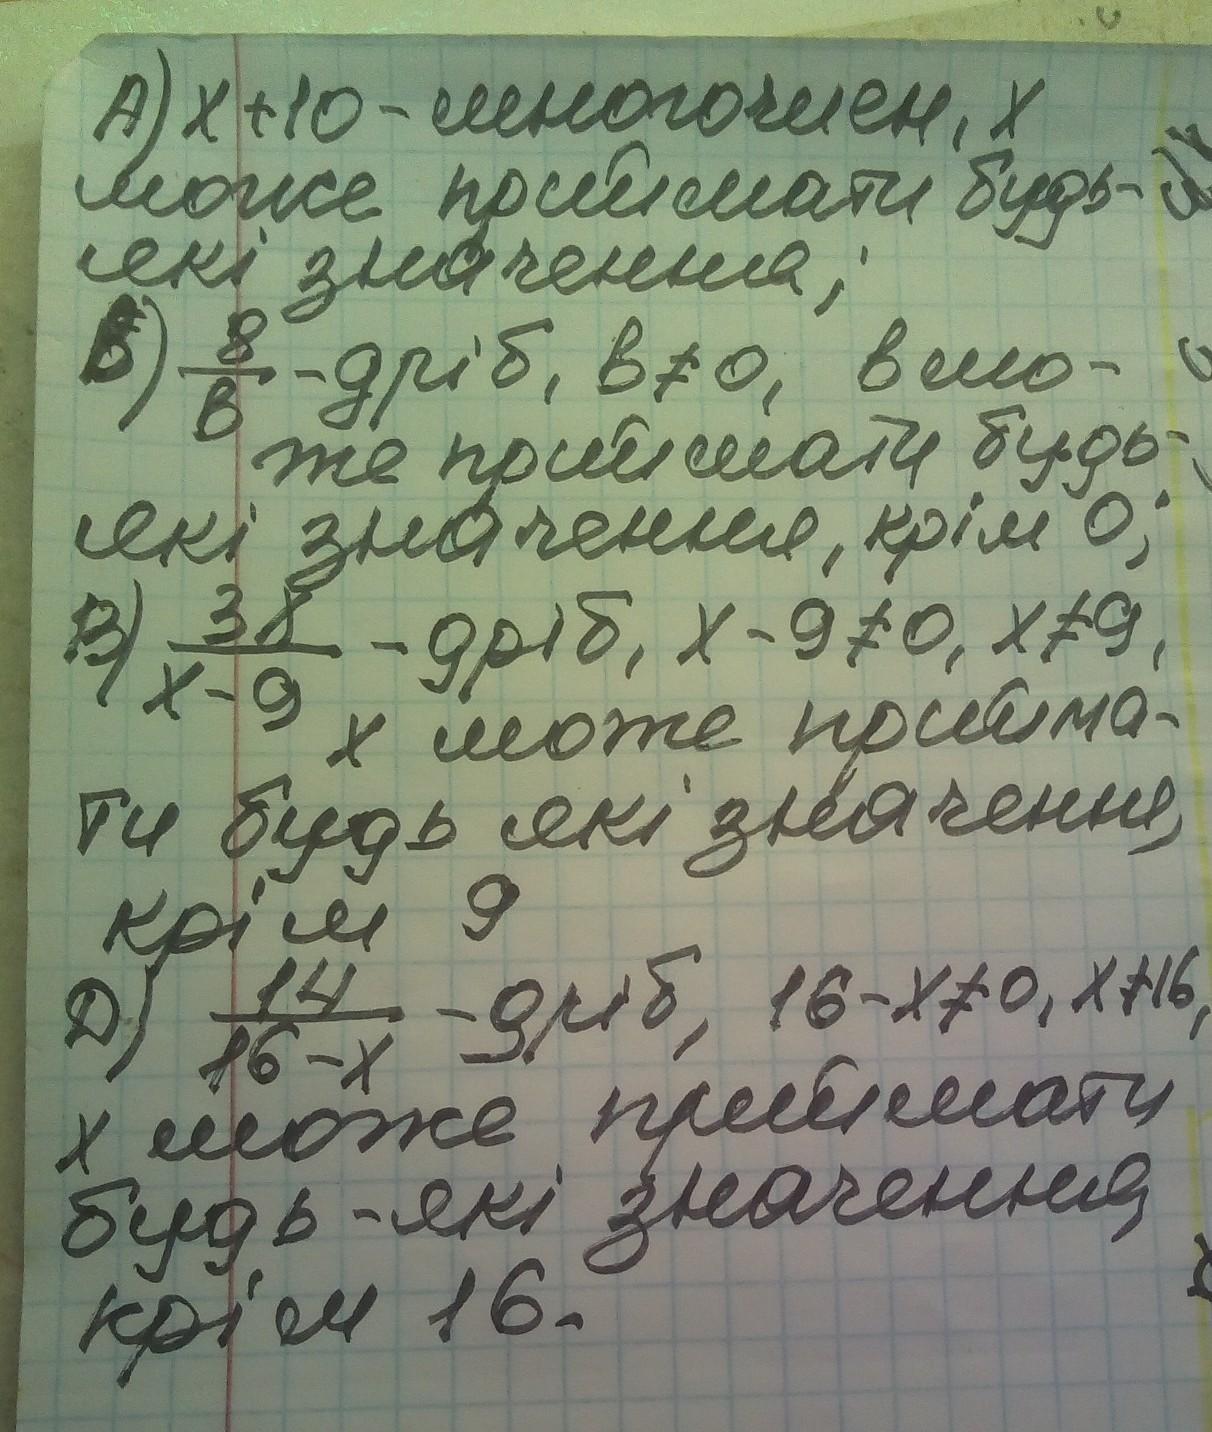 А) х+10 - многочлен, х
може приймати будь-
які значення;
Б) 8/в - дріб, в≠0, в мо-
же приймати будь-
які значення, крім 0;
В) 3х/х-9 - дріб, х-9≠0, х≠9,
х може прийма-
ти будь які значення,
крім 9
D) 14/16-х - дріб, 16-х≠0, х≠16,
х може приймати
будь-які значення,
крім 16.